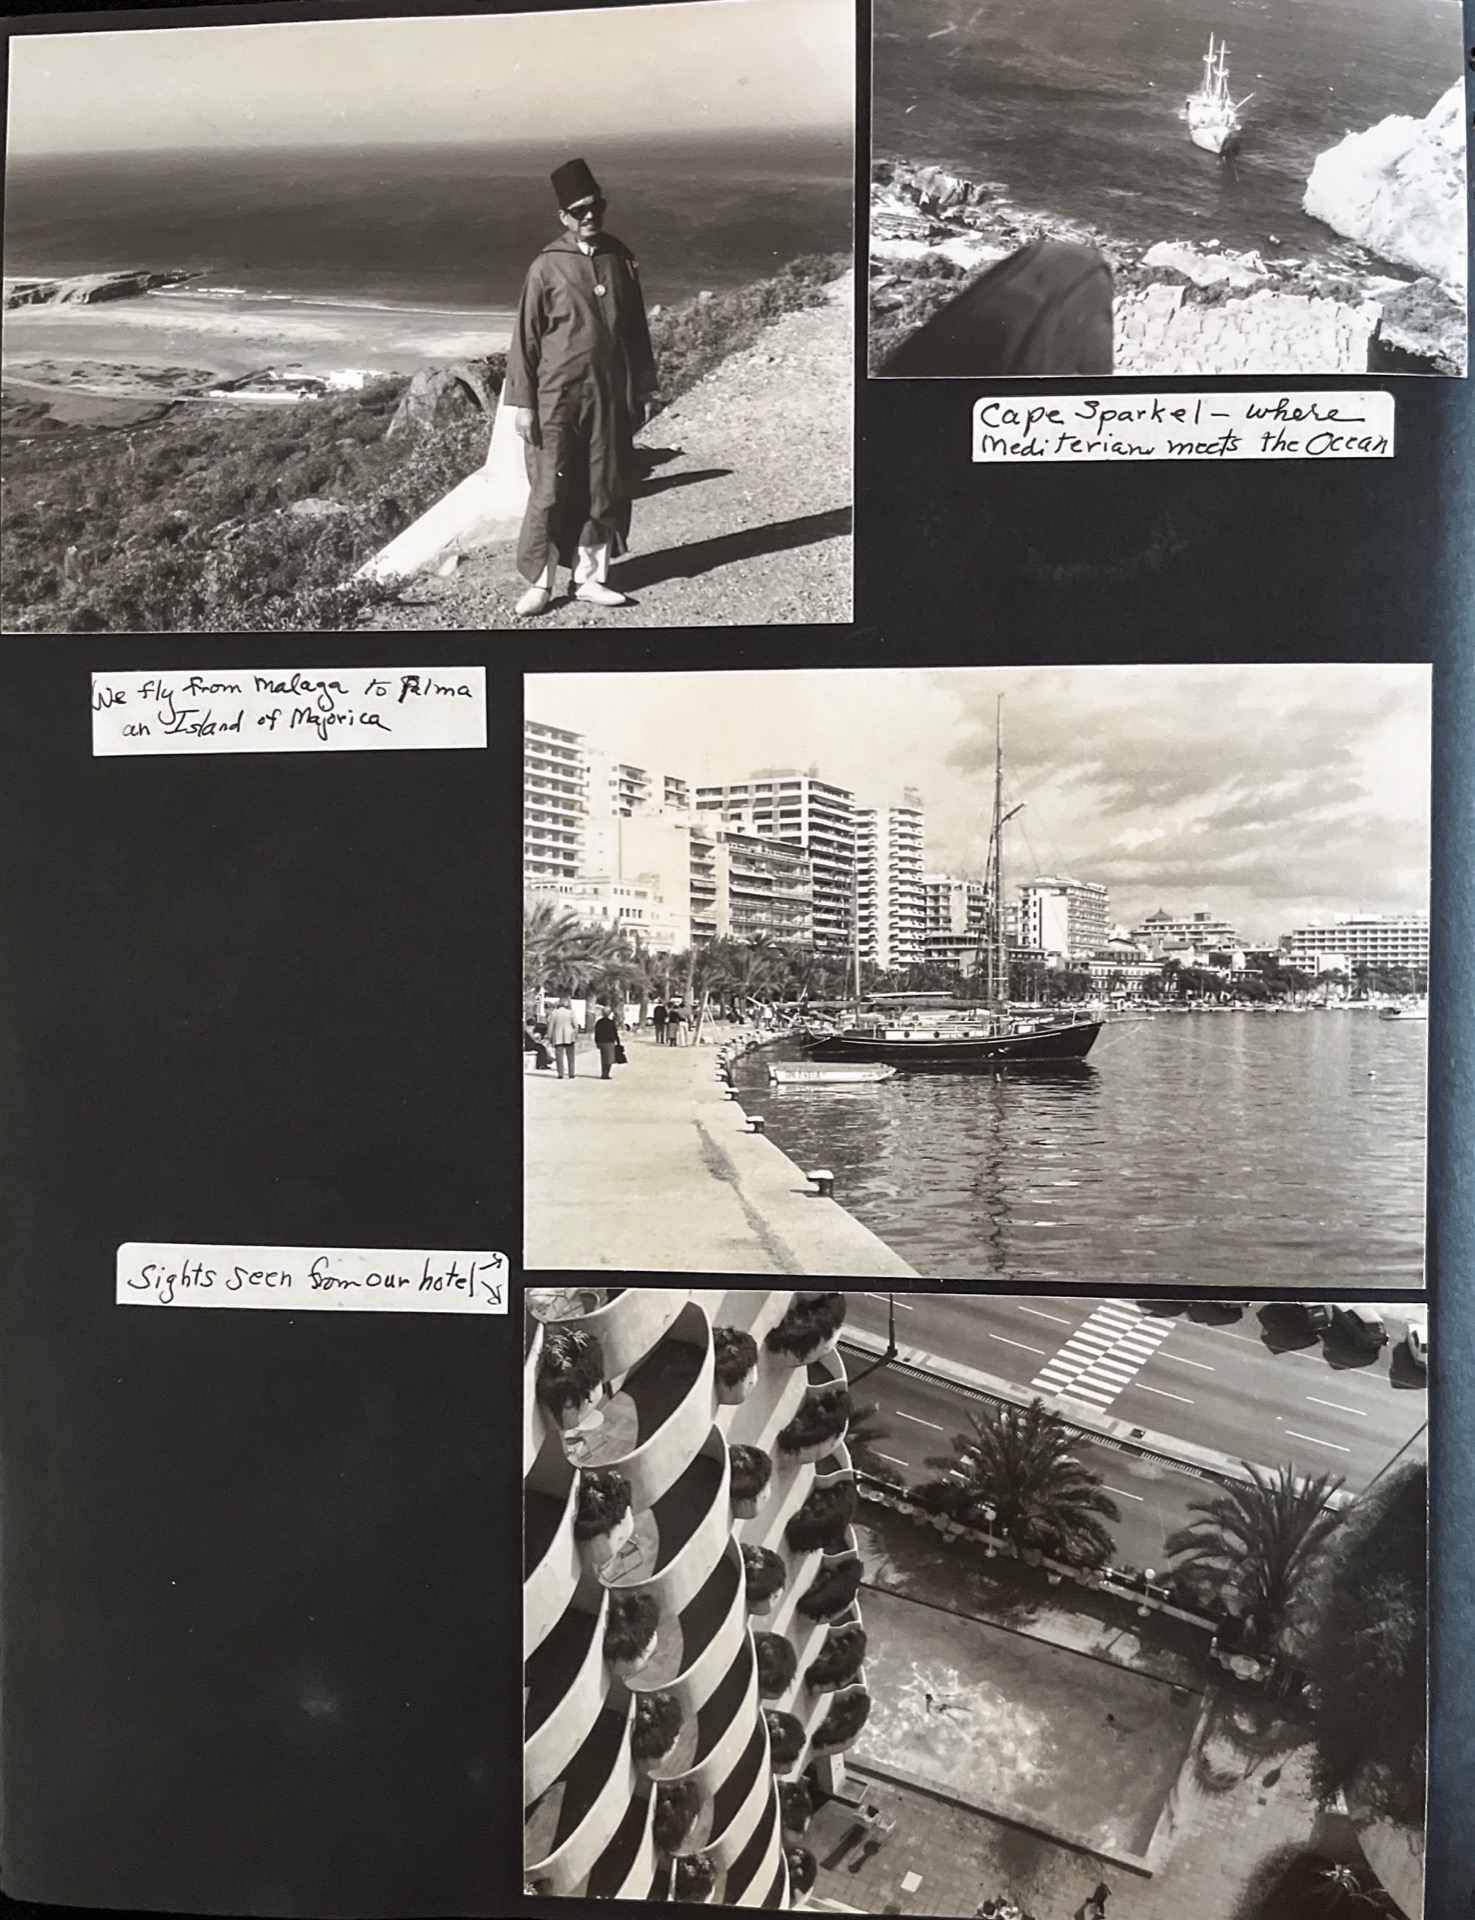 Cape Sparkel – where
Mediterian meets the Ocean
We fly from Malaga to Palma
an Island of Majorica
Sights seen from our hotel